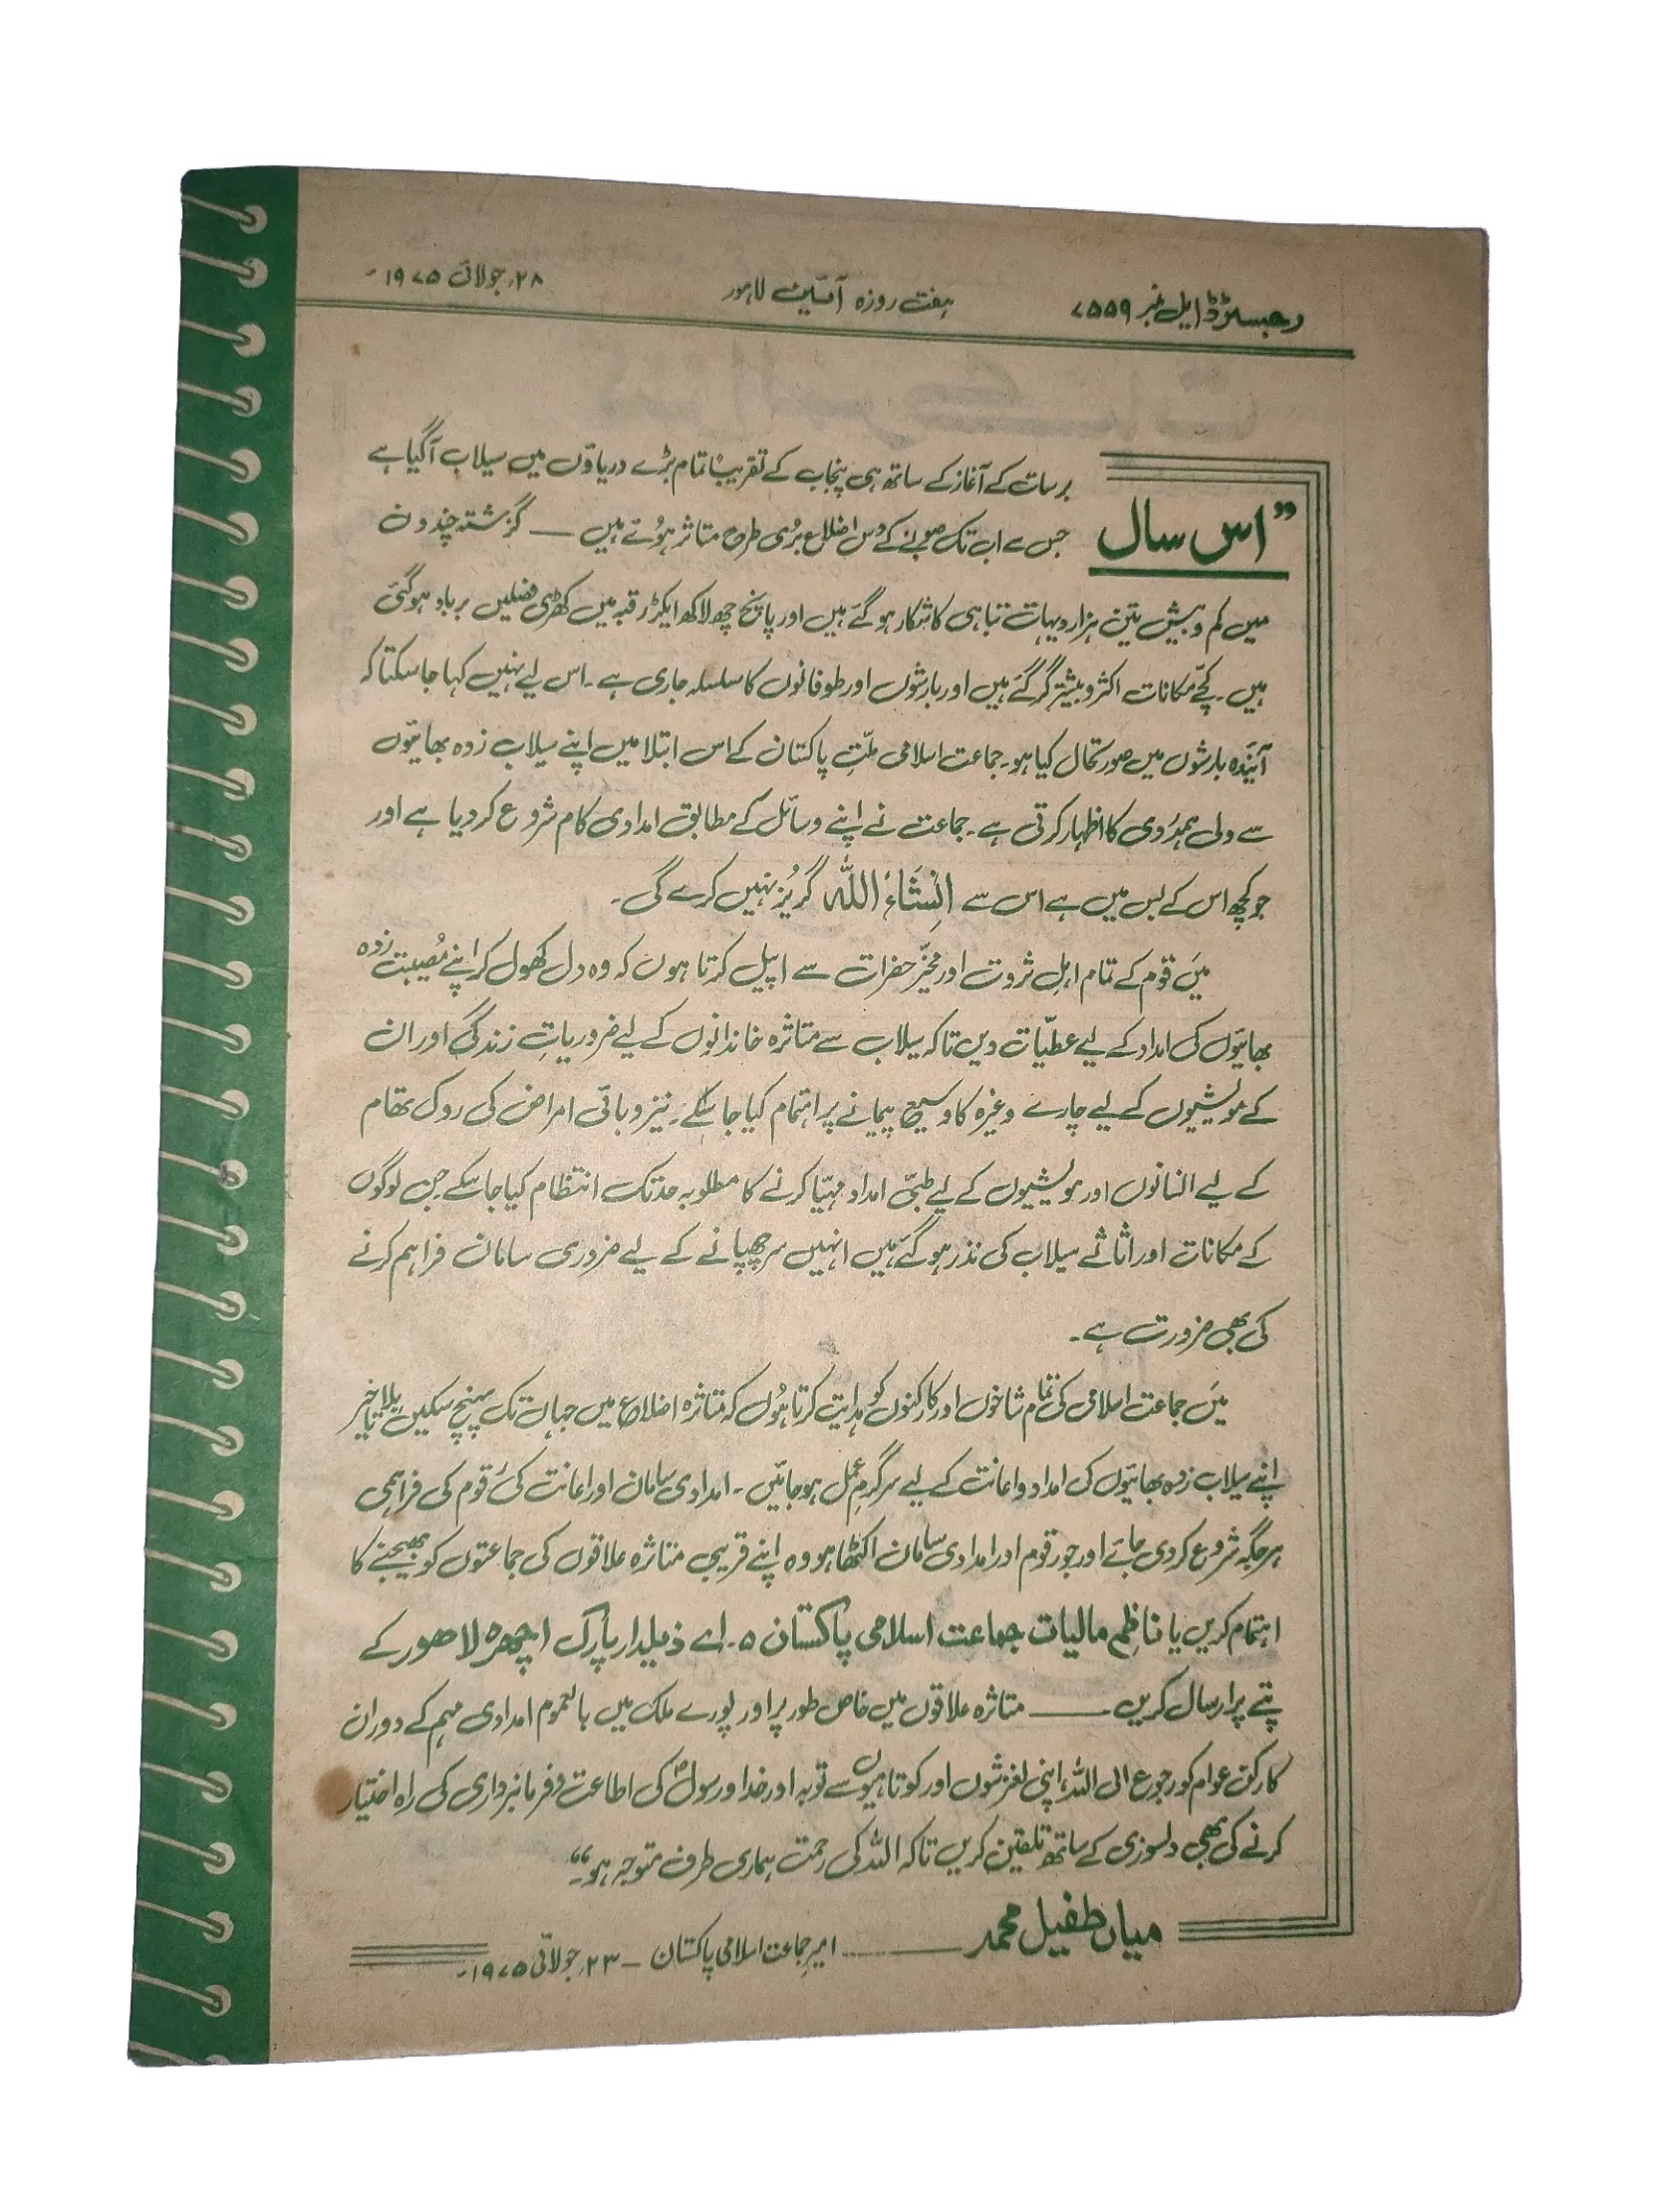 رجسٹرڈ ایل نمبر ۷۵۵۹
ہفت روزہ آئین لاہور
۲۸؍ جولائی ۱۹۷۵ء
”اس سال
برسات کے آغاز کے ساتھ ہی پنجاب کے تقریباً تمام بڑے دریاؤں میں سیلاب آگیا ہے
جس سے اب تک صوبے کے دس اضلاع بُری طرح متاثر ہُوئے ہیں — گزشتہ چند دن
میں کم و بیش تین ہزار دیہات تباہی کا شکار ہو گئے ہیں اور پانچ چھ لاکھ ایکڑ رقبہ میں کھڑی فصلیں برباد ہوگئی
ہیں۔ کچّے مکانات اکثر و بیشتر گر گئے ہیں اور بارشوں اور طوفانوں کا سلسلہ جاری ہے۔ اس لیے نہیں کہا جاسکتا کہ
آئیندہ بارشوں میں صورتحال کیا ہو۔ جماعت اسلامی ملّتِ پاکستان کے اس ابتلا میں اپنے سیلاب زدہ بھائیوں
سے دلی ہمدردی کا اظہار کرتی ہے۔ جماعت نے اپنے وسائل کے مطابق امدادی کام شروع کر دیا ہے اور
جو کچھ اس کے بس میں ہے اس سے اِنشَاءَ اللّٰہ گریز نہیں کرے گی۔
میَں قوم کے تمام اہلِ ثروت اور مخیّر حضرات سے اپیل کرتا ہوں کہ وہ دل کھول کر اپنے مُصیبت زدہ
بھائیوں کی امداد کے لیے عطیّات دیں تاکہ سیلاب سے متاثرہ خاندانوں کے لیے ضروریاتِ زندگی اور ان
کے مویشیوں کے لیے چارے وغیرہ کا وسیع پیمانے پر اہتمام کیا جا سکے۔ نیز وبائی امراض کی روک تھام
کے لیے انسانوں اور مویشیوں کے لیے طبّی امداد مہیّا کرنے کا مطلوبہ حد تک انتظام کیا جا سکے جن لوگوں
کے مکانات اور اثاثے سیلاب کی نذر ہو گئے ہیں انہیں سر چھپانے کے لیے ضروری سامان فراہم کرنے
کی بھی ضرورت ہے۔
میَں جماعت اسلامی کی تمام شاخوں اور کارکنوں کو ہدایت کرتا ہُوں کہ متاثرہ اضلاع میں جہاں تک پہنچ سکیں بلا تاخیر
اپنے سیلاب زدہ بھائیوں کی امداد و اعانت کے لیے سرگرمِ عمل ہو جائیں۔ امدادی سامان اور اعانت کی رقوم کی فراہمی
ہر جگہ شروع کر دی جائے اور جو رقوم اور امدادی سامان اکٹھا ہو وہ اپنے قریبی متاثرہ علاقوں کی جماعتوں کو بھیجنے کا
اہتمام کریں یا ناظم مالیات جماعت اسلامی پاکستان ۵۔اے ذیلدار پارک اچھرہ لاہور کے
پتے پر ارسال کریں —— متاثرہ علاقوں میں خاص طور پر اور پورے ملک میں بالعموم امدادی مہم کے دوران
کارکن عوام کو رجوع الی اللہ، اپنی لغزشوں اور کوتاہیوں سے توبہ اور خدا و رسولؐ کی اطاعت و فرمانبرداری کی راہ اختیار
کرنے کی بھی دلسوزی کے ساتھ تلقین کریں تاکہ اللہ کی رحمت ہماری طرف متوجہ ہو۔“
میاں طفیل محمد —— امیر جماعت اسلامی پاکستان — ۲۳؍ جولائی ۱۹۷۵ء